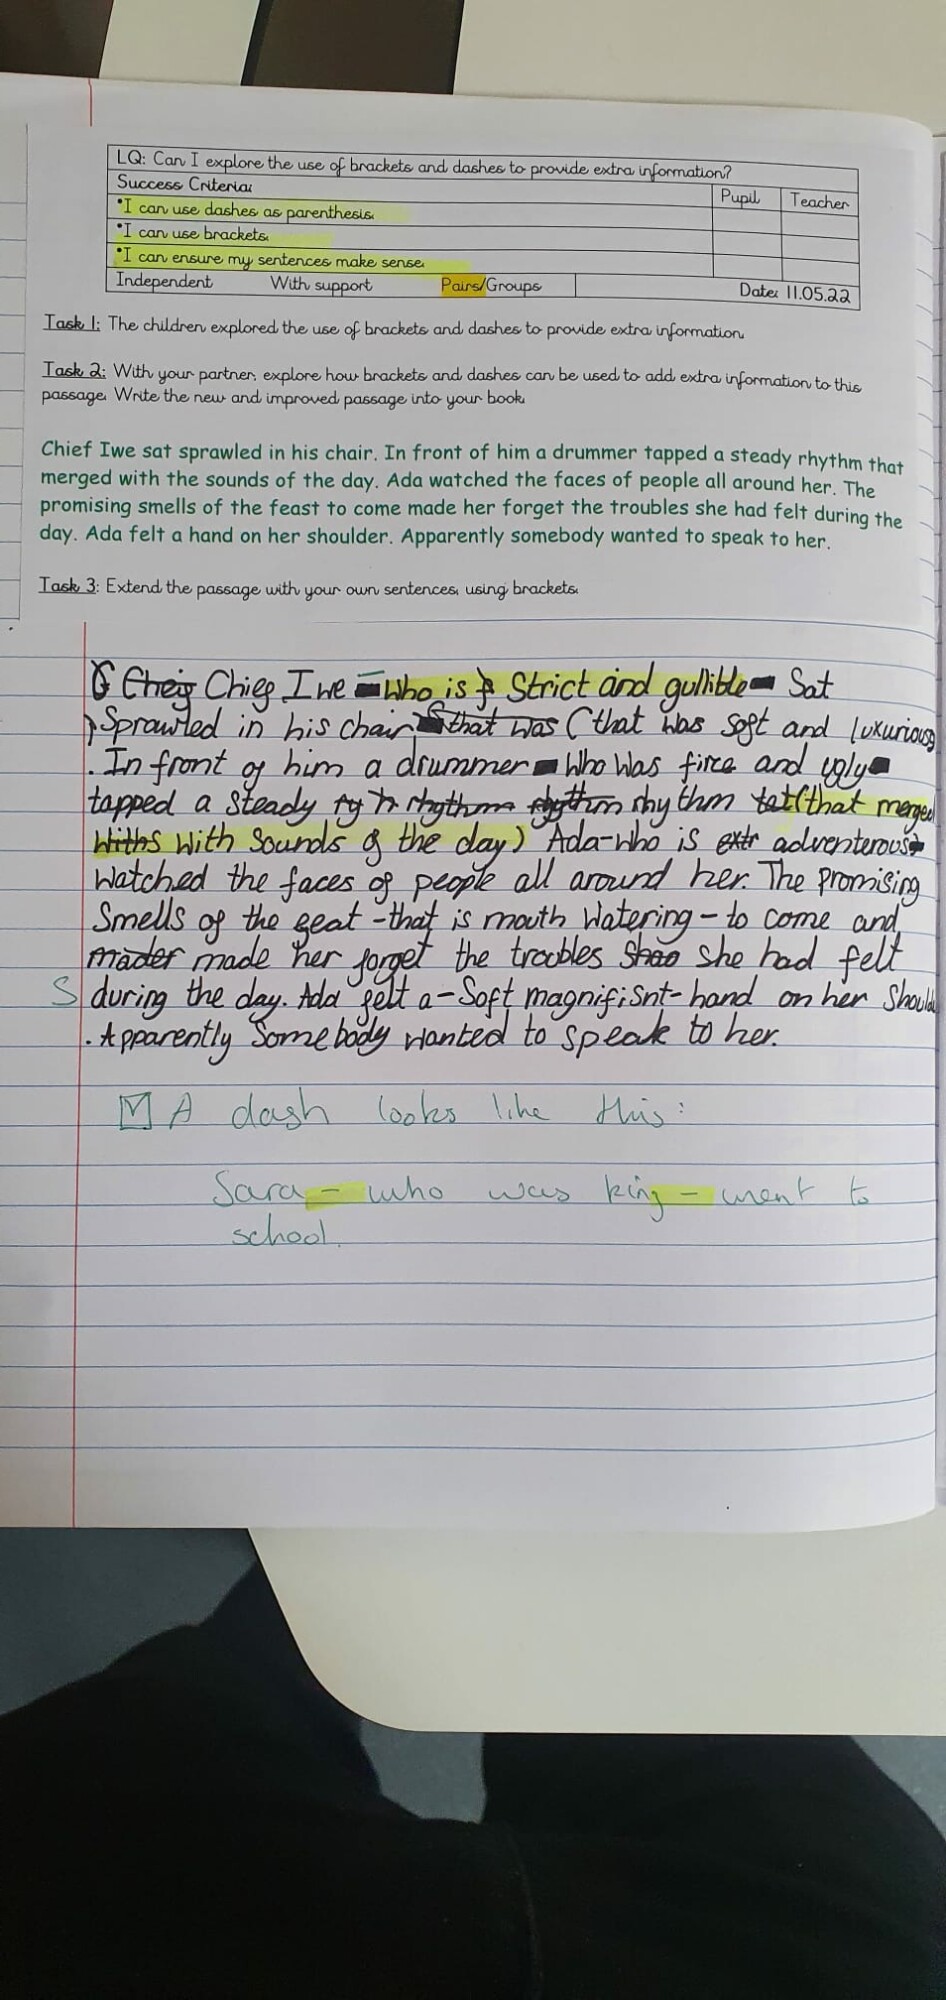 LQ: Can I explore the use of brackets and dashes to provide extra information?
Success Criteria:
Pupil
Teacher
•I can use dashes as parenthesis.
•I can use brackets.
•I can ensure my sentences make sense.
Independent With support Pairs/Groups
Date: 11.05.22
Task 1: The children explored the use of brackets and dashes to provide extra information.
Task 2: With your partner, explore how brackets and dashes can be used to add extra information to this
passage. Write the new and improved passage into your book.
Chief Iwe sat sprawled in his chair. In front of him a drummer tapped a steady rhythm that
merged with the sounds of the day. Ada watched the faces of people all around her. The
promising smells of the feast to come made her forget the troubles she had felt during the
day. Ada felt a hand on her shoulder. Apparently somebody wanted to speak to her.
Task 3: Extend the passage with your own sentences, using brackets.
Chief Iwe - who is Strict and gullible - Sat
Sprawled in his chair that was (that was soft and luxurious)
. In front of him a drummer - who was firce and ugly -
tapped a steady rhythm rhythm rhythm (that merged
with with sounds of the day) Ada-who is adventerous-
watched the faces of people all around her. The Promising
Smells of the feat - that is mouth watering - to come and
made her forget the troubles she had felt
S during the day. Ada felt a - Soft magnifisnt - hand on her Should
. Apparently Somebody wanted to speak to her.
A dash looks like this:
Sara - who was king - went to
school.